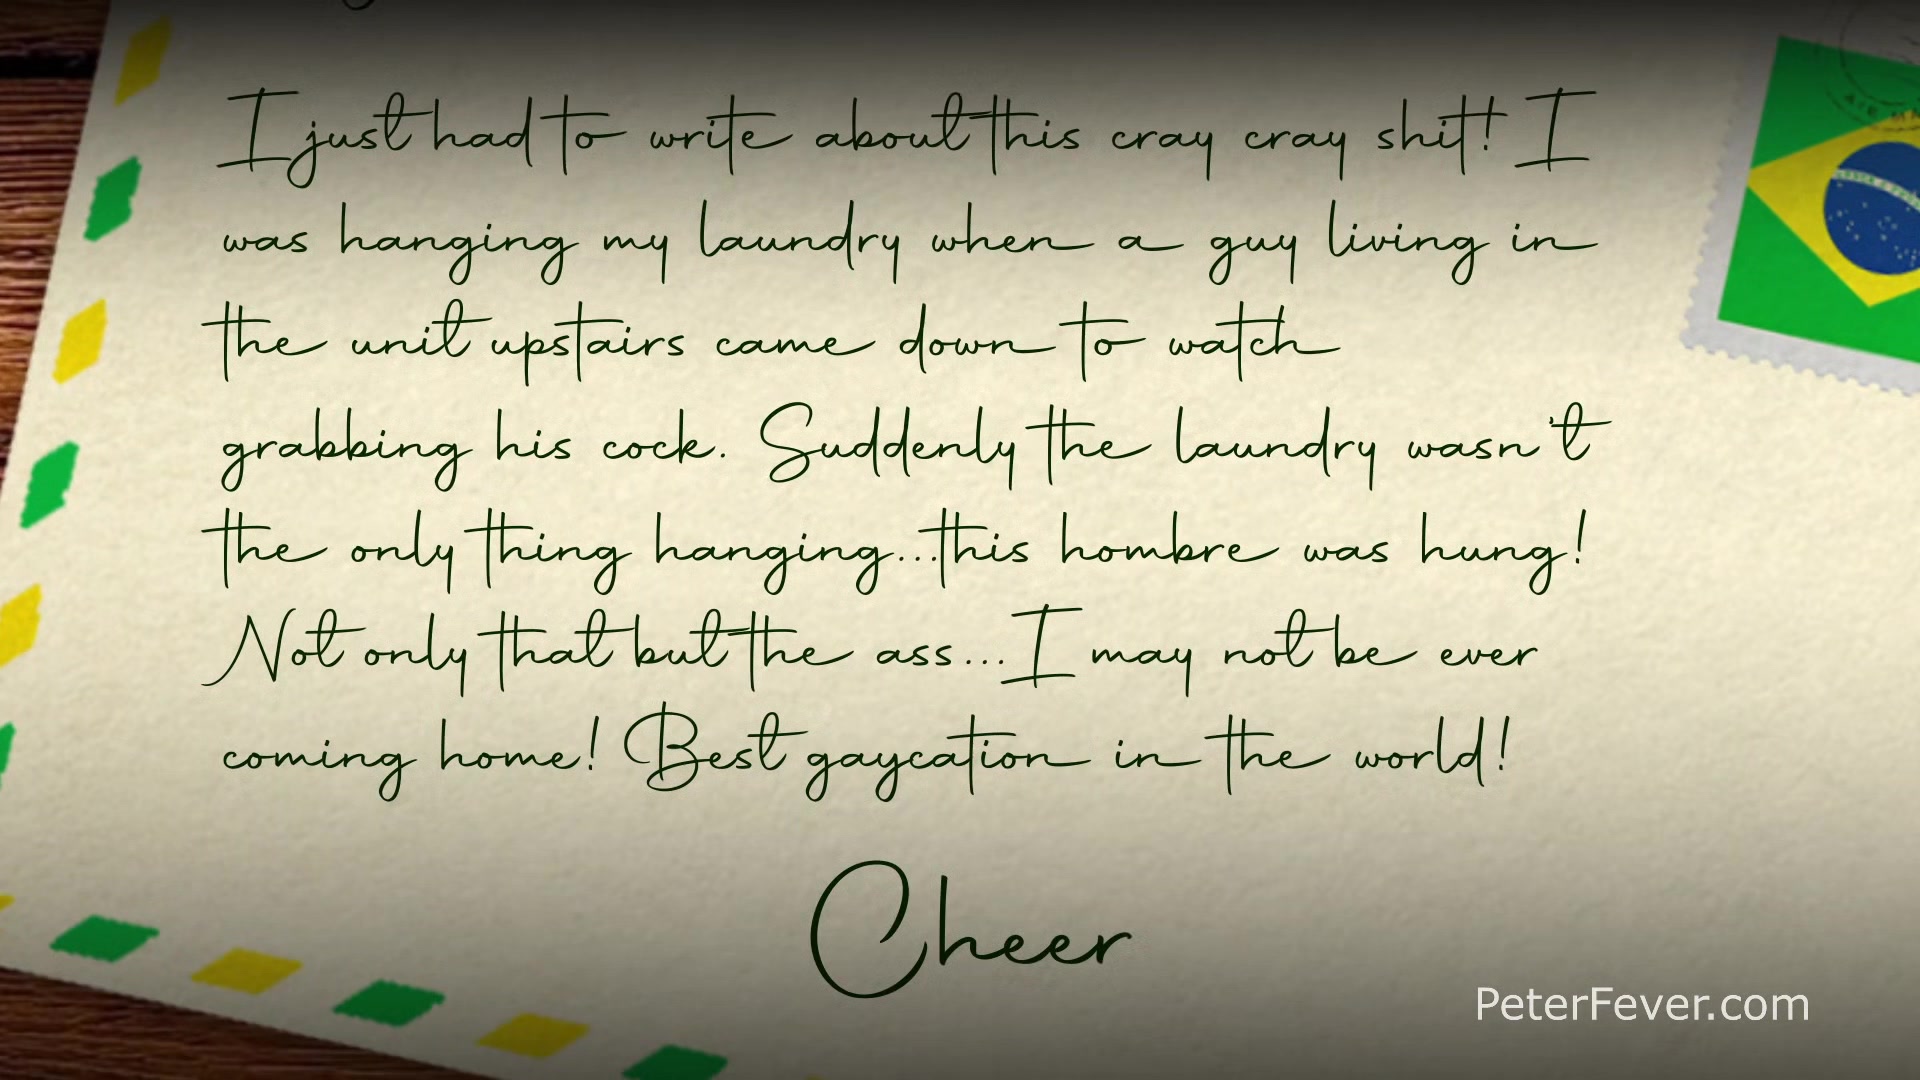 I just had to write about this cray cray shit! I
was hanging my laundry when a guy living in
the unit upstairs came down to watch
grabbing his cock. Suddenly the laundry wasn't
the only thing hanging...this hombre was hung!
Not only that but the ass...I may not be ever
coming home! Best gaycation in the world!
Cheer
PeterFever.com